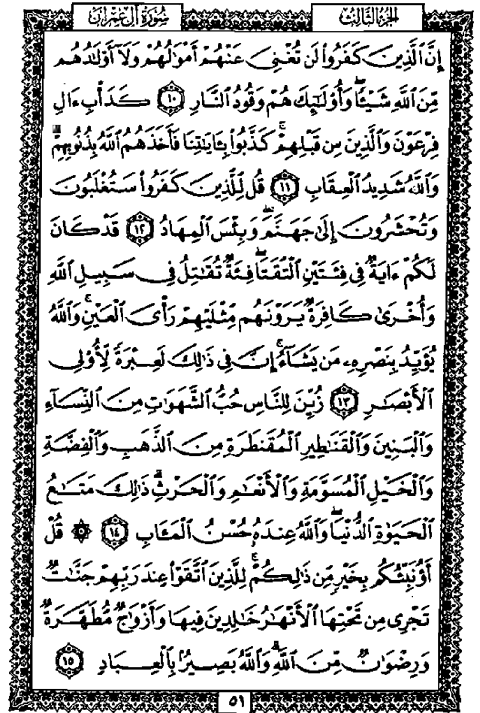 الجزء الثالث
سورة آل عمران
إِنَّ ٱلَّذِينَ كَفَرُوا۟ لَن تُغْنِىَ عَنْهُمْ أَمْوَٰلُهُمْ وَلَآ أَوْلَٰدُهُم
مِّنَ ٱللَّهِ شَيْـًٔا ۖ وَأُو۟لَٰٓئِكَ هُمْ وَقُودُ ٱلنَّارِ ١٠ كَدَأْبِ ءَالِ
فِرْعَوْنَ وَٱلَّذِينَ مِن قَبْلِهِمْ ۚ كَذَّبُوا۟ بِـَٔايَٰتِنَا فَأَخَذَهُمُ ٱللَّهُ بِذُنُوبِهِمْ ۗ
وَٱللَّهُ شَدِيدُ ٱلْعِقَابِ ١١ قُل لِّلَّذِينَ كَفَرُوا۟ سَتُغْلَبُونَ
وَتُحْشَرُونَ إِلَىٰ جَهَنَّمَ ۚ وَبِئْسَ ٱلْمِهَادُ ١٢ قَدْ كَانَ
لَكُمْ ءَايَةٌ فِى فِئَتَيْنِ ٱلْتَقَتَا ۖ فِئَةٌ تُقَٰتِلُ فِى سَبِيلِ ٱللَّهِ
وَأُخْرَىٰ كَافِرَةٌ يَرَوْنَهُم مِّثْلَيْهِمْ رَأْىَ ٱلْعَيْنِ ۚ وَٱللَّهُ
يُؤَيِّدُ بِنَصْرِهِۦ مَن يَشَآءُ ۗ إِنَّ فِى ذَٰلِكَ لَعِبْرَةً لِّأُو۟لِى
ٱلْأَبْصَٰرِ ١٣ زُيِّنَ لِلنَّاسِ حُبُّ ٱلشَّهَوَٰتِ مِنَ ٱلنِّسَآءِ
وَٱلْبَنِينَ وَٱلْقَنَٰطِيرِ ٱلْمُقَنطَرَةِ مِنَ ٱلذَّهَبِ وَٱلْفِضَّةِ
وَٱلْخَيْلِ ٱلْمُسَوَّمَةِ وَٱلْأَنْعَٰمِ وَٱلْحَرْثِ ۗ ذَٰلِكَ مَتَٰعُ
ٱلْحَيَوٰةِ ٱلدُّنْيَا ۖ وَٱللَّهُ عِندَهُۥ حُسْنُ ٱلْمَـَٔابِ ١٤ ۞ قُلْ
أَؤُنَبِّئُكُم بِخَيْرٍ مِّن ذَٰلِكُمْ ۚ لِلَّذِينَ ٱتَّقَوْا۟ عِندَ رَبِّهِمْ جَنَّٰتٌ
تَجْرِى مِن تَحْتِهَا ٱلْأَنْهَٰرُ خَٰلِدِينَ فِيهَا وَأَزْوَٰجٌ مُّطَهَّرَةٌ
وَرِضْوَٰنٌ مِّنَ ٱللَّهِ ۗ وَٱللَّهُ بَصِيرٌۢ بِٱلْعِبَادِ ١٥
٥١